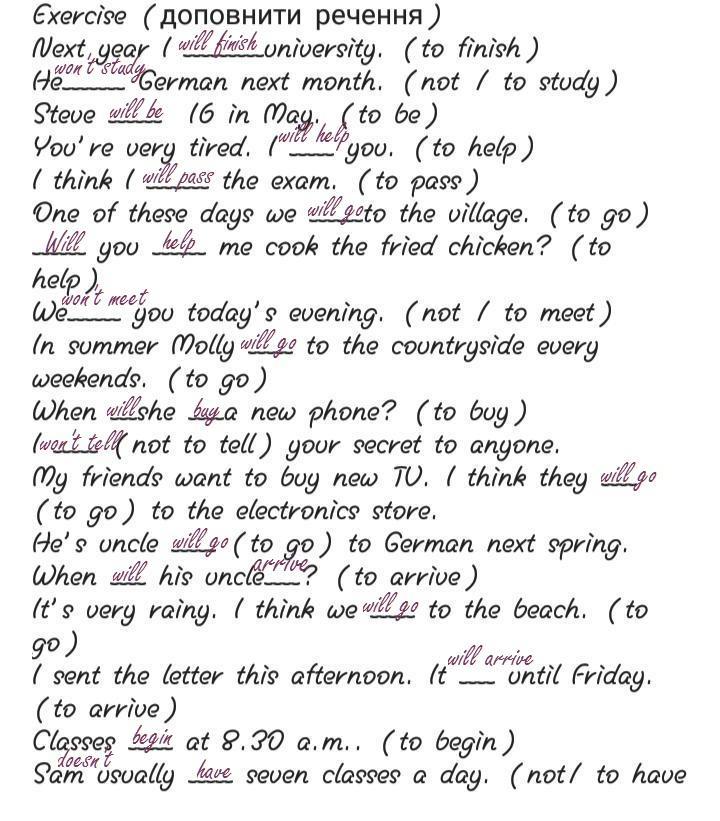 Exercise (доповнити речення)
Next year I will finish university. (to finish)
He won't study German next month. (not / to study)
Steve will be 16 in May. (to be)
You're very tired. I will help you. (to help)
I think I will pass the exam. (to pass)
One of these days we will go to the village. (to go)
Will you help me cook the fried chicken? (to
help)
We won't meet you today's evening. (not / to meet)
In summer Molly will go to the countryside every
weekends. (to go)
When will she buy a new phone? (to buy)
I won't tell (not to tell) your secret to anyone.
My friends want to buy new TV. I think they will go
(to go) to the electronics store.
He's uncle will go (to go) to German next spring.
When will his uncle arrive? (to arrive)
It's very rainy. I think we will go to the beach. (to
go)
I sent the letter this afternoon. It will arrive until Friday.
(to arrive)
Classes begin at 8.30 a.m.. (to begin)
Sam doesn't usually have seven classes a day. (not/ to have